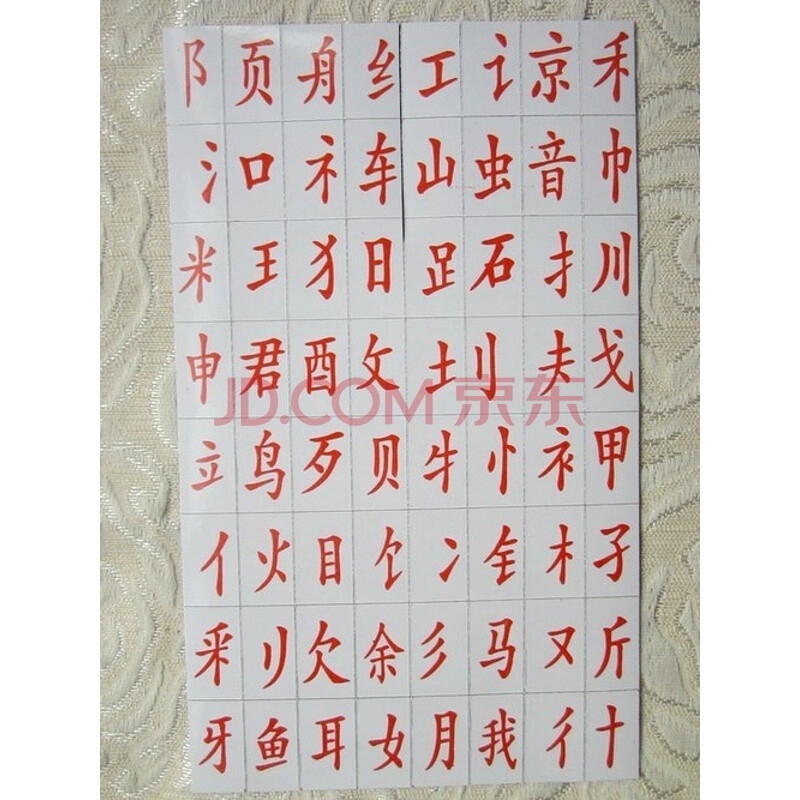 阝 页 舟 纟 工 讠 京 禾
氵 口 礻 车 山 虫 音 巾
米 王 犭 日 𧾷 石 扌 川
申 君 酉 攵 土 刂 夫 戈
JD.COM 京东
立 鸟 歹 贝 牜 忄 衤 甲
亻 火 目 饣 冫 钅 木 子
釆 刂 欠 余 彡 马 又 斤
牙 鱼 耳 女 月 我 彳 十